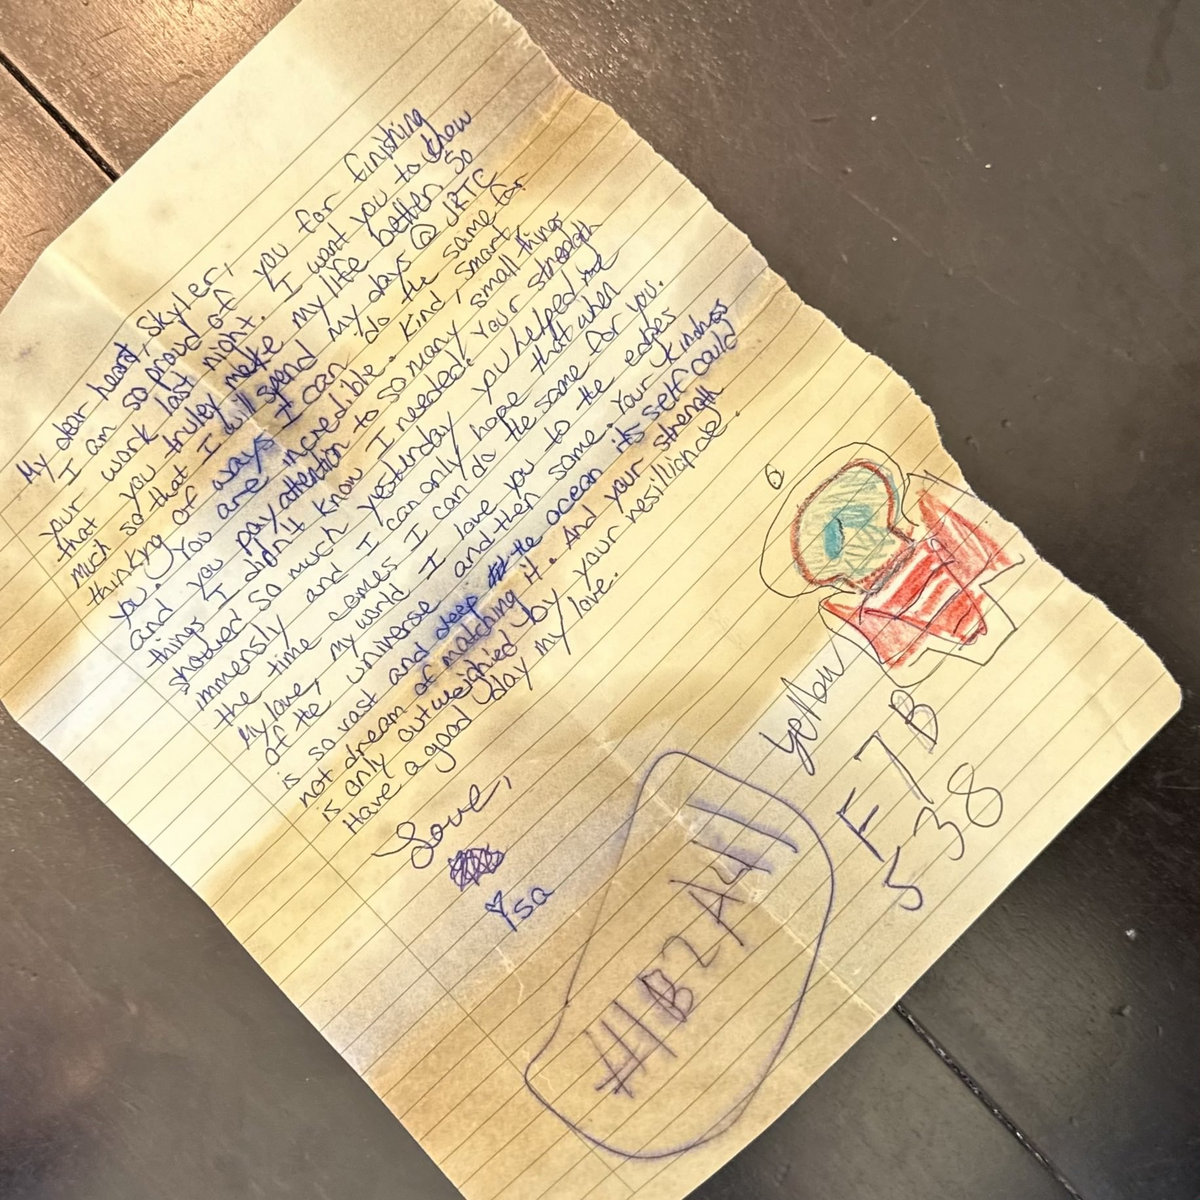 My dear heart, Skyler,
I am so proud of you for finishing
your work last night. I want you to know
that you truley make my life better. So
much so that I will spend my days @ JRTC
thinking of ways I can do the same for
you. You are incredible. Kind, smart,
and you pay attention to so many small things
things I didn't know I needed. Your strength
showed so much yesturday you helped me
immensly and I can only hope that when
the time comes I can do the same for you.
My love, my world I love you to the edges
of the universe and then some. Your kindness
is so vast and deep the ocean its self could
not dream of matching it. And your strength
is only outweighed by your resilliance.
Have a good day my love.
Love,
Isa
6
yellow
F7B
538
#B2A41